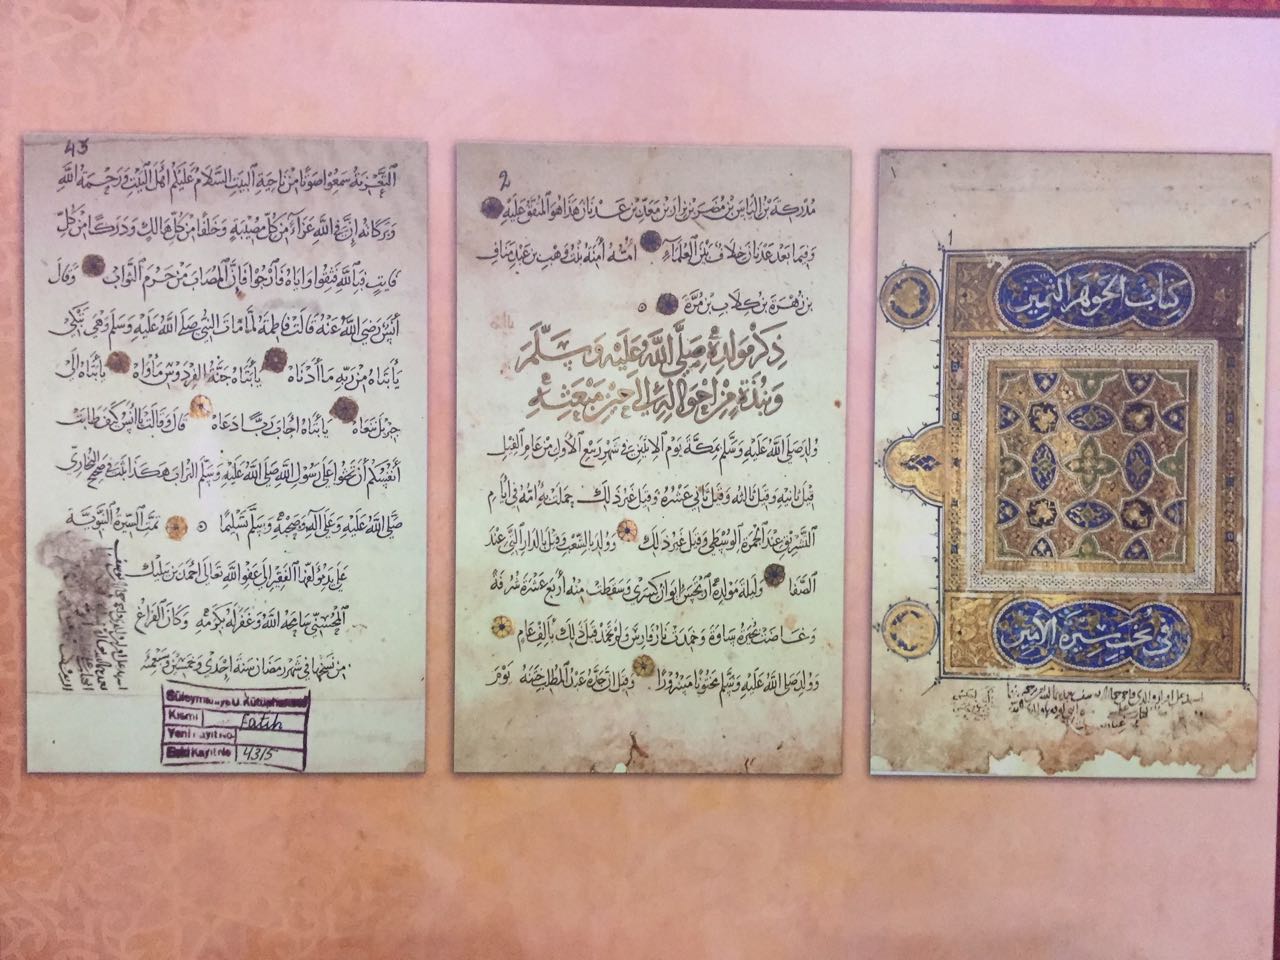 كتاب الجوهر الثمين
في تحسيرة الامين
2
مدركة بن الياس بن مضر بن نزار بن معد بن عدنان هذا هو المتفق عليه
وفيما بعد عدنان خلاف بين العلماء امه آمنة بنت وهب بن عبد مناف
بن زهرة بن كلاب بن مرة
ذكر مولده صلى الله عليه وسلم
ونبذة من احواله الى حين مبعثه
ولد صلى الله عليه وسلم بمكة يوم الاثنين في شهر ربيع الاول من عام الفيل
قيل ثانيه وقيل ثالثه وقيل ثاني عشره وقيل غير ذلك حملت به امه في ايام
التشريق عند الجمرة الوسطى وقيل غير ذلك وولد بالشعب وقيل بالدار التي عند
الصفا وليلة مولده ارتجس ايوان كسرى وسقطت منه اربع عشرة شرفة
وغاضت بحيرة ساوة وخمدت نار فارس ولم تخمد قبل ذلك بالف عام
وولد صلى الله عليه وسلم مختونا مسرورا وقيل ان جده عبد المطلب ختنه يوم
43
التعزية سمعوا صوتا من ناحية البيت السلام عليكم اهل البيت ورحمة الله
وبركاته ان في الله عزاء من كل مصيبة وخلفا من كل هالك ودركا من كل
فايت فبالله فثقوا واياه فارجوا فان المصاب من حرم الثواب وقال
انس رضي الله عنه قالت فاطمة لما مات النبي صلى الله عليه وسلم وهي تبكي
يا ابتاه من ربه ما ادناه يا ابتاه جنة الفردوس ماواه يا ابتاه الى
جبريل ننعاه يا ابتاه اجاب ربا دعاه قال وقالت يا انس كيف طابت
انفسكم ان تحثوا على رسول الله صلى الله عليه وسلم التراب هكذا ثبت في صحيح البخاري
صلى الله عليه وعلى آله وصحبه وسلم تسليما تمت السيرة النبوية
على يد مؤلفها الفقير الى عفو الله تعالى احمد بن
المحسني سامحه الله وغفر له بكرمه وكان الفراغ
من نسخها في شهر رمضان سنة احدى وخمسين وسبعمئة
Süleymaniye U. Kütüphanesi
Kısmı Fatih
Yeni Kayıt No.
Eski Kayıt No 4315